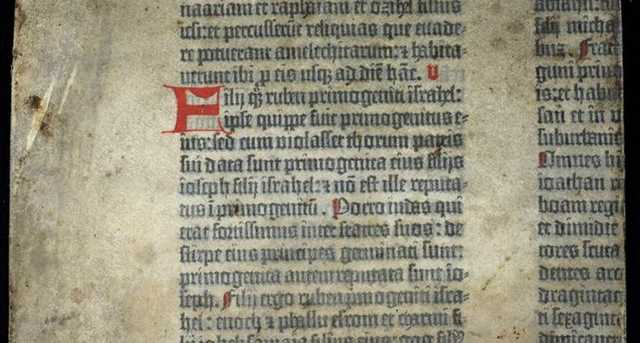 naariam et raphaiam et ozihel filius
iesi: et percusserūt reliquias que euade-
re potuerant amelechitarum: & habita-
uerunt ibi p eis usq; ad diē hāc. V
Filij qȝ ruben primogeniti israhel:
ipse quippe fuit primogenitus e-
ius: sed cum violasset thorum patris
sui data sunt primogenita eius filijs
ioseph filij israhel: & nō est ille reputa-
tus ī primogenitū. Porro iudas qui
erat fortissimus inter fratres suos: de
stirpe eius principes germinati sunt:
primogenita autem reputata sunt io-
seph. Filij ergo ruben pmogeniti isra-
hel: enoch & phallu esrom et charmi. fi-
filij micha
buz. Fratr
guni princ
is: et habi
san et in v
suburbani
Omnes hi
ioathan re
boam regi
et dimidie
tores scuta
dentes arc
draginta
ti sexagint
dimicante